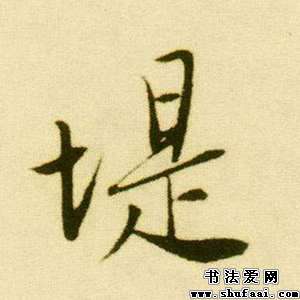 堤
书法爱网
www.shufaai.com